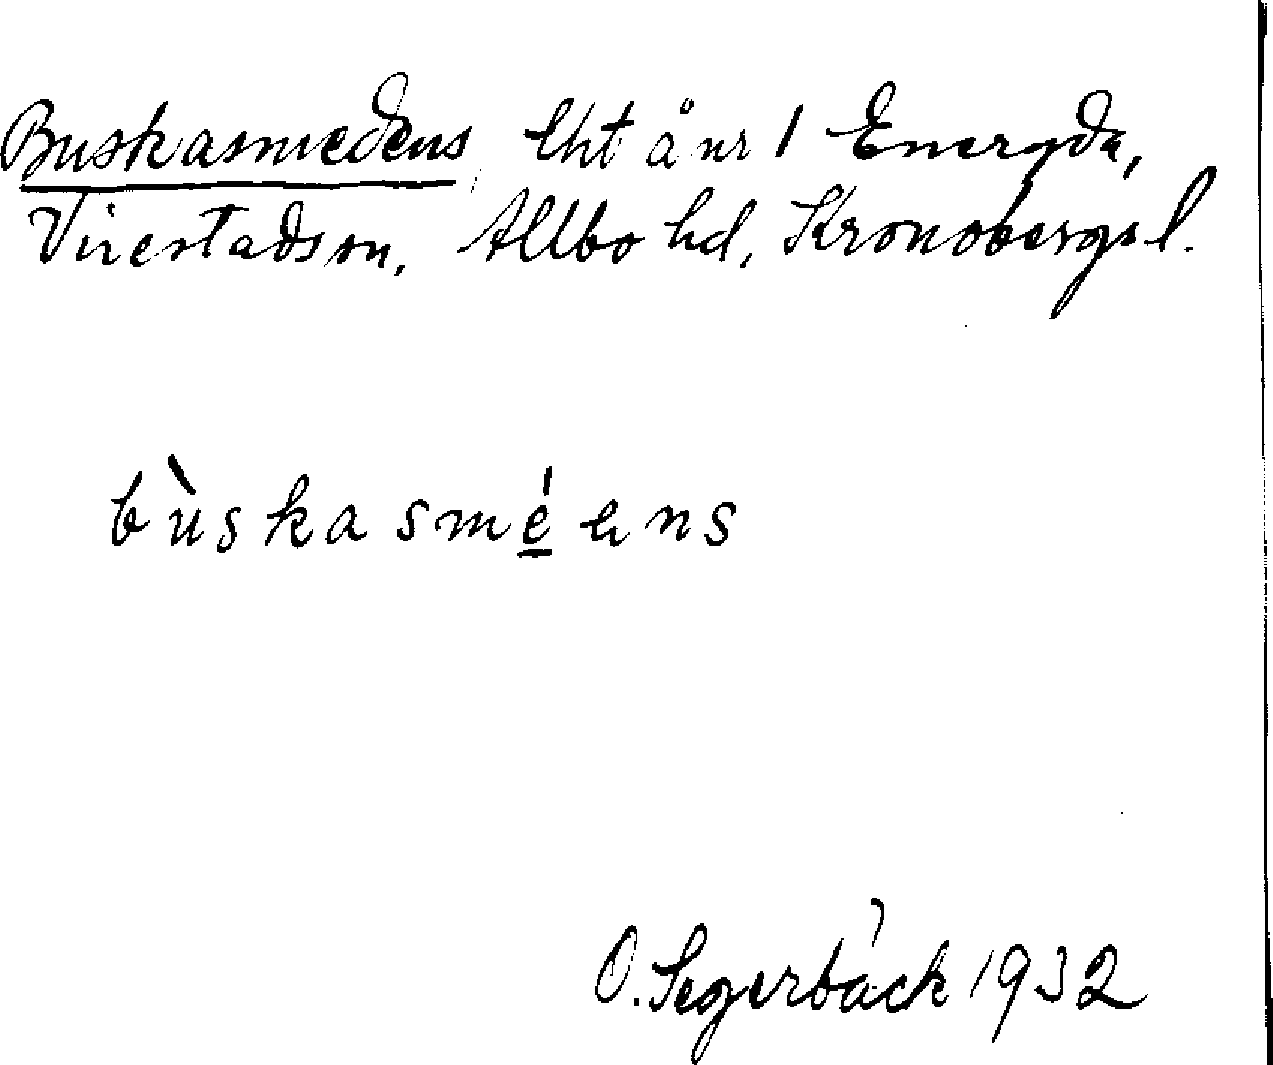 Buskasmedens, lht å nr 1 Eneryda,
Virestads sn, Allbo hd, Kronobergs l.
bùskasmé̱ens
O. Segerbäck 1932